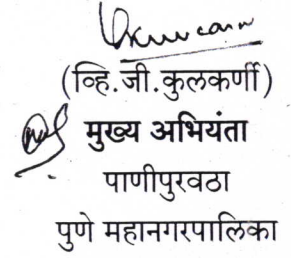 (व्हि.जी.कुलकर्णी)
मुख्य अभियंता
पाणीपुरवठा
पुणे महानगरपालिका